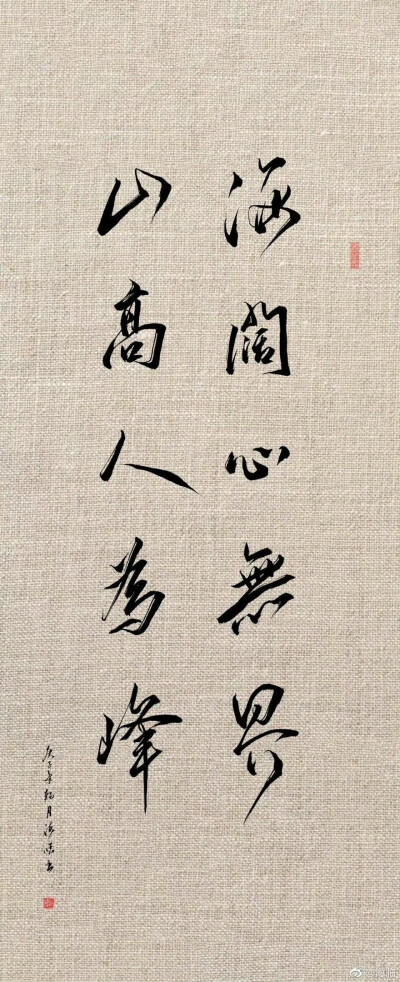 海闊心無界
山高人為峰
庚子年
月
書